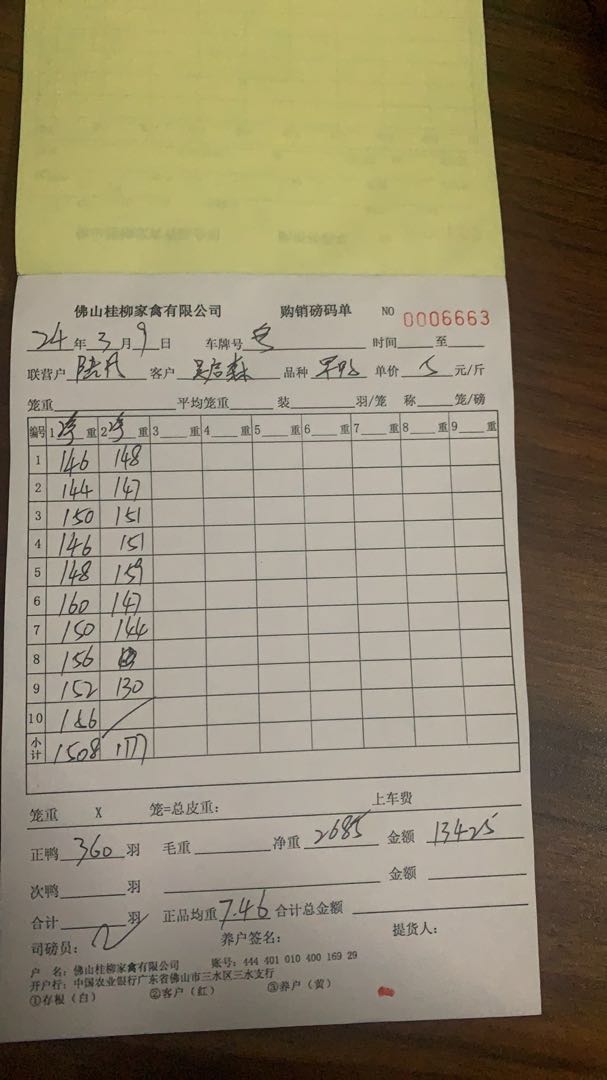 佛山桂柳家禽有限公司 购销磅码单 NO 0006663
24年3月9日 车牌号 时间 至
联营户 客户 吴启森 品种 单价 5 元/斤
笼重 平均笼重 装 羽/笼 称 笼/磅
编号 1净重 2净重 3 重 4 重 5 重 6 重 7 重 8 重 9 重
1 146 148
2 144 147
3 150 151
4 146 151
5 148 159
6 160 147
7 150 144
8 156
9 152 130
10
小计 1508 1177
笼重 X 笼=总皮重: 上车费
正鸭 360 羽 毛重 净重 2685 金额 13425
次鸭 羽 金额
合计 羽 正品均重 7.46 合计总金额
司磅员: 养户签名: 提货人:
户 名: 佛山桂柳家禽有限公司 账号: 444 401 010 400 169 29
开户行: 中国农业银行广东省佛山市三水区三水支行
①存根(白) ②客户(红) ③养户(黄)